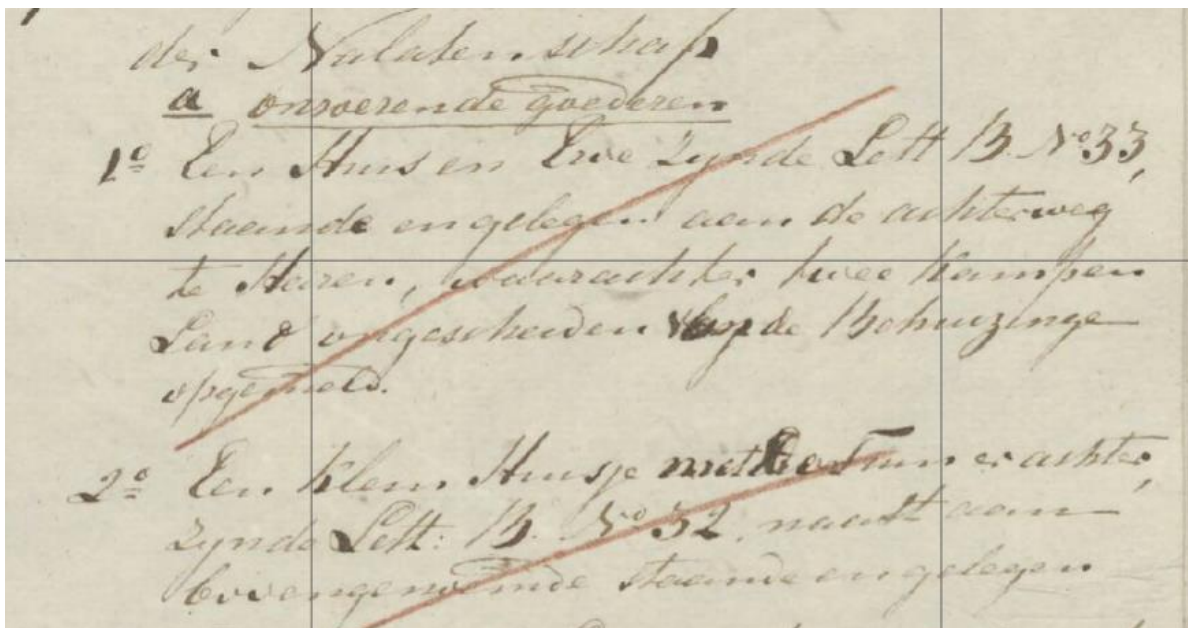 der Nalatenschap
a onroerende goederen
1º Een Huis en Erve zynde Lett B. Nº 33,
staande en gelegen aan de achterweg
te Haren, waarachter twee kampen
Land ongescheiden de Behuizinge
opgemeld.
2º Een klein Huisje met Tuin er achter,
zynde Lett: B. Nº 32. naast aan
bovengenoemde staande en gelegen